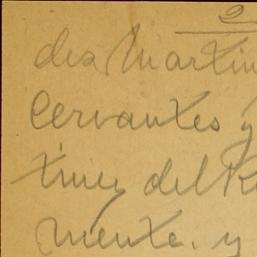 2
des Martin
Cervantes y
tinez del R
mente. y